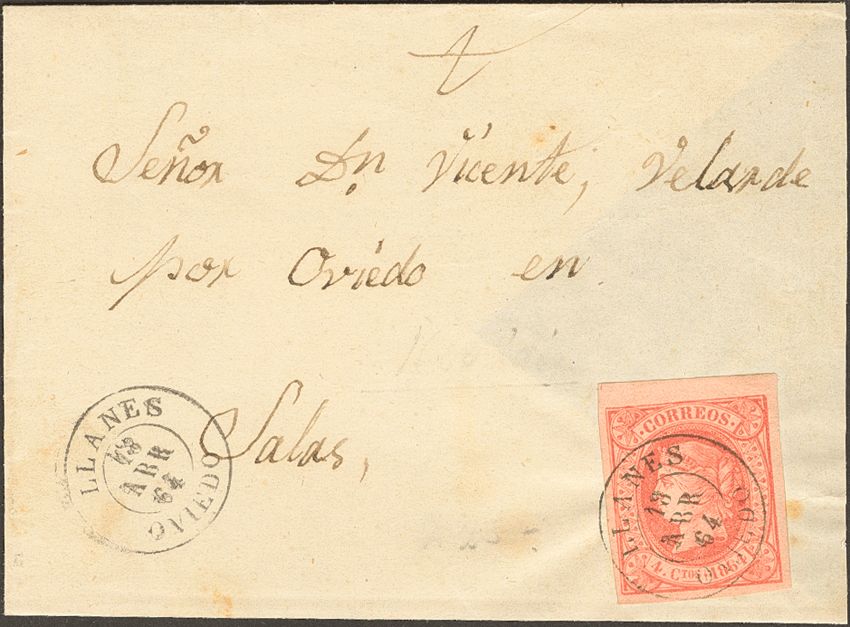 Señor Dn Vicente, Velarde
por Oviedo en
Salas,
LLANES
ABR
64
OVIEDO
CORREOS
LLANES
13
ABR
64
OVIEDO
4 CTOS 1864